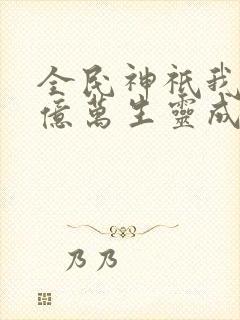 全民神祇我
億萬生靈成
乃乃